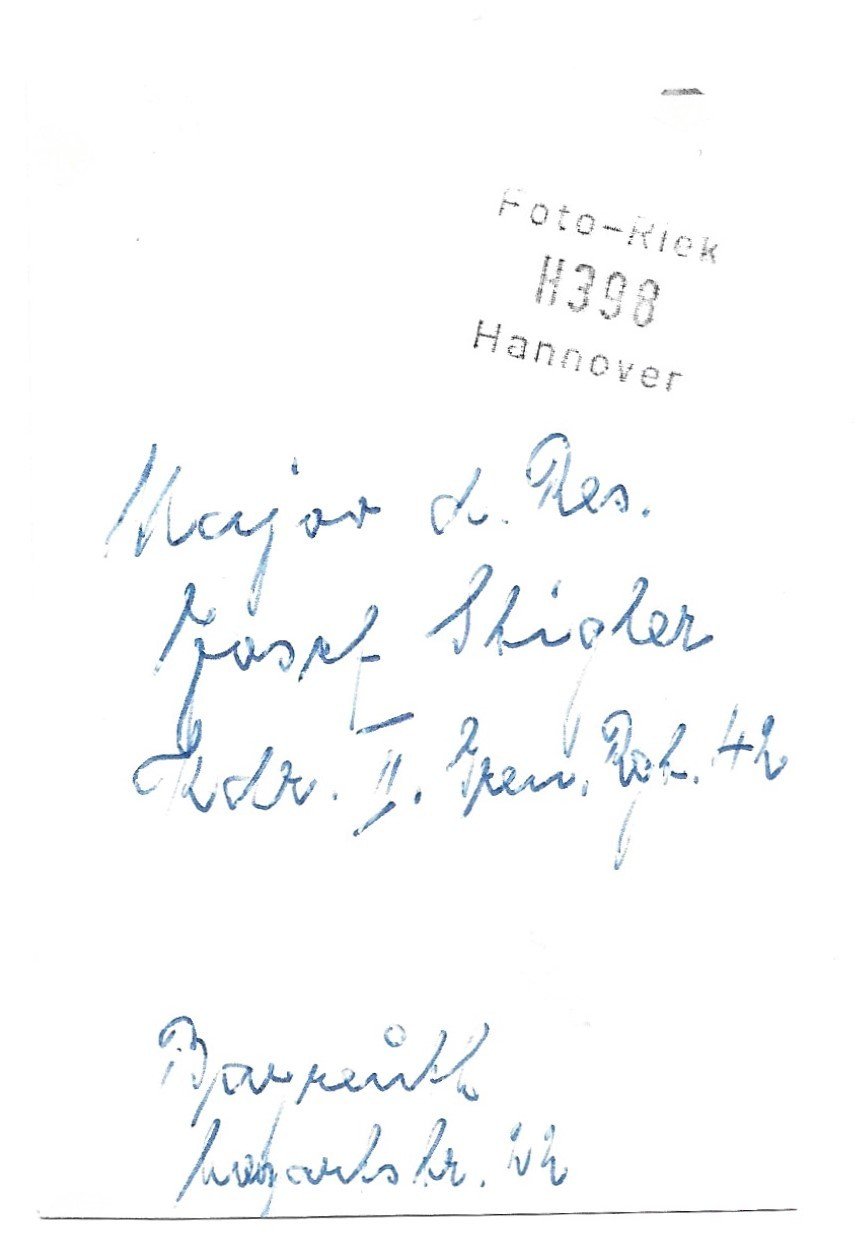 Foto-Riek
H398
Hannover
Major d. Res.
Josef Stigler
Kdr. II. Gren. Rgt. 42
Bayreuth
Mozartstr. 22